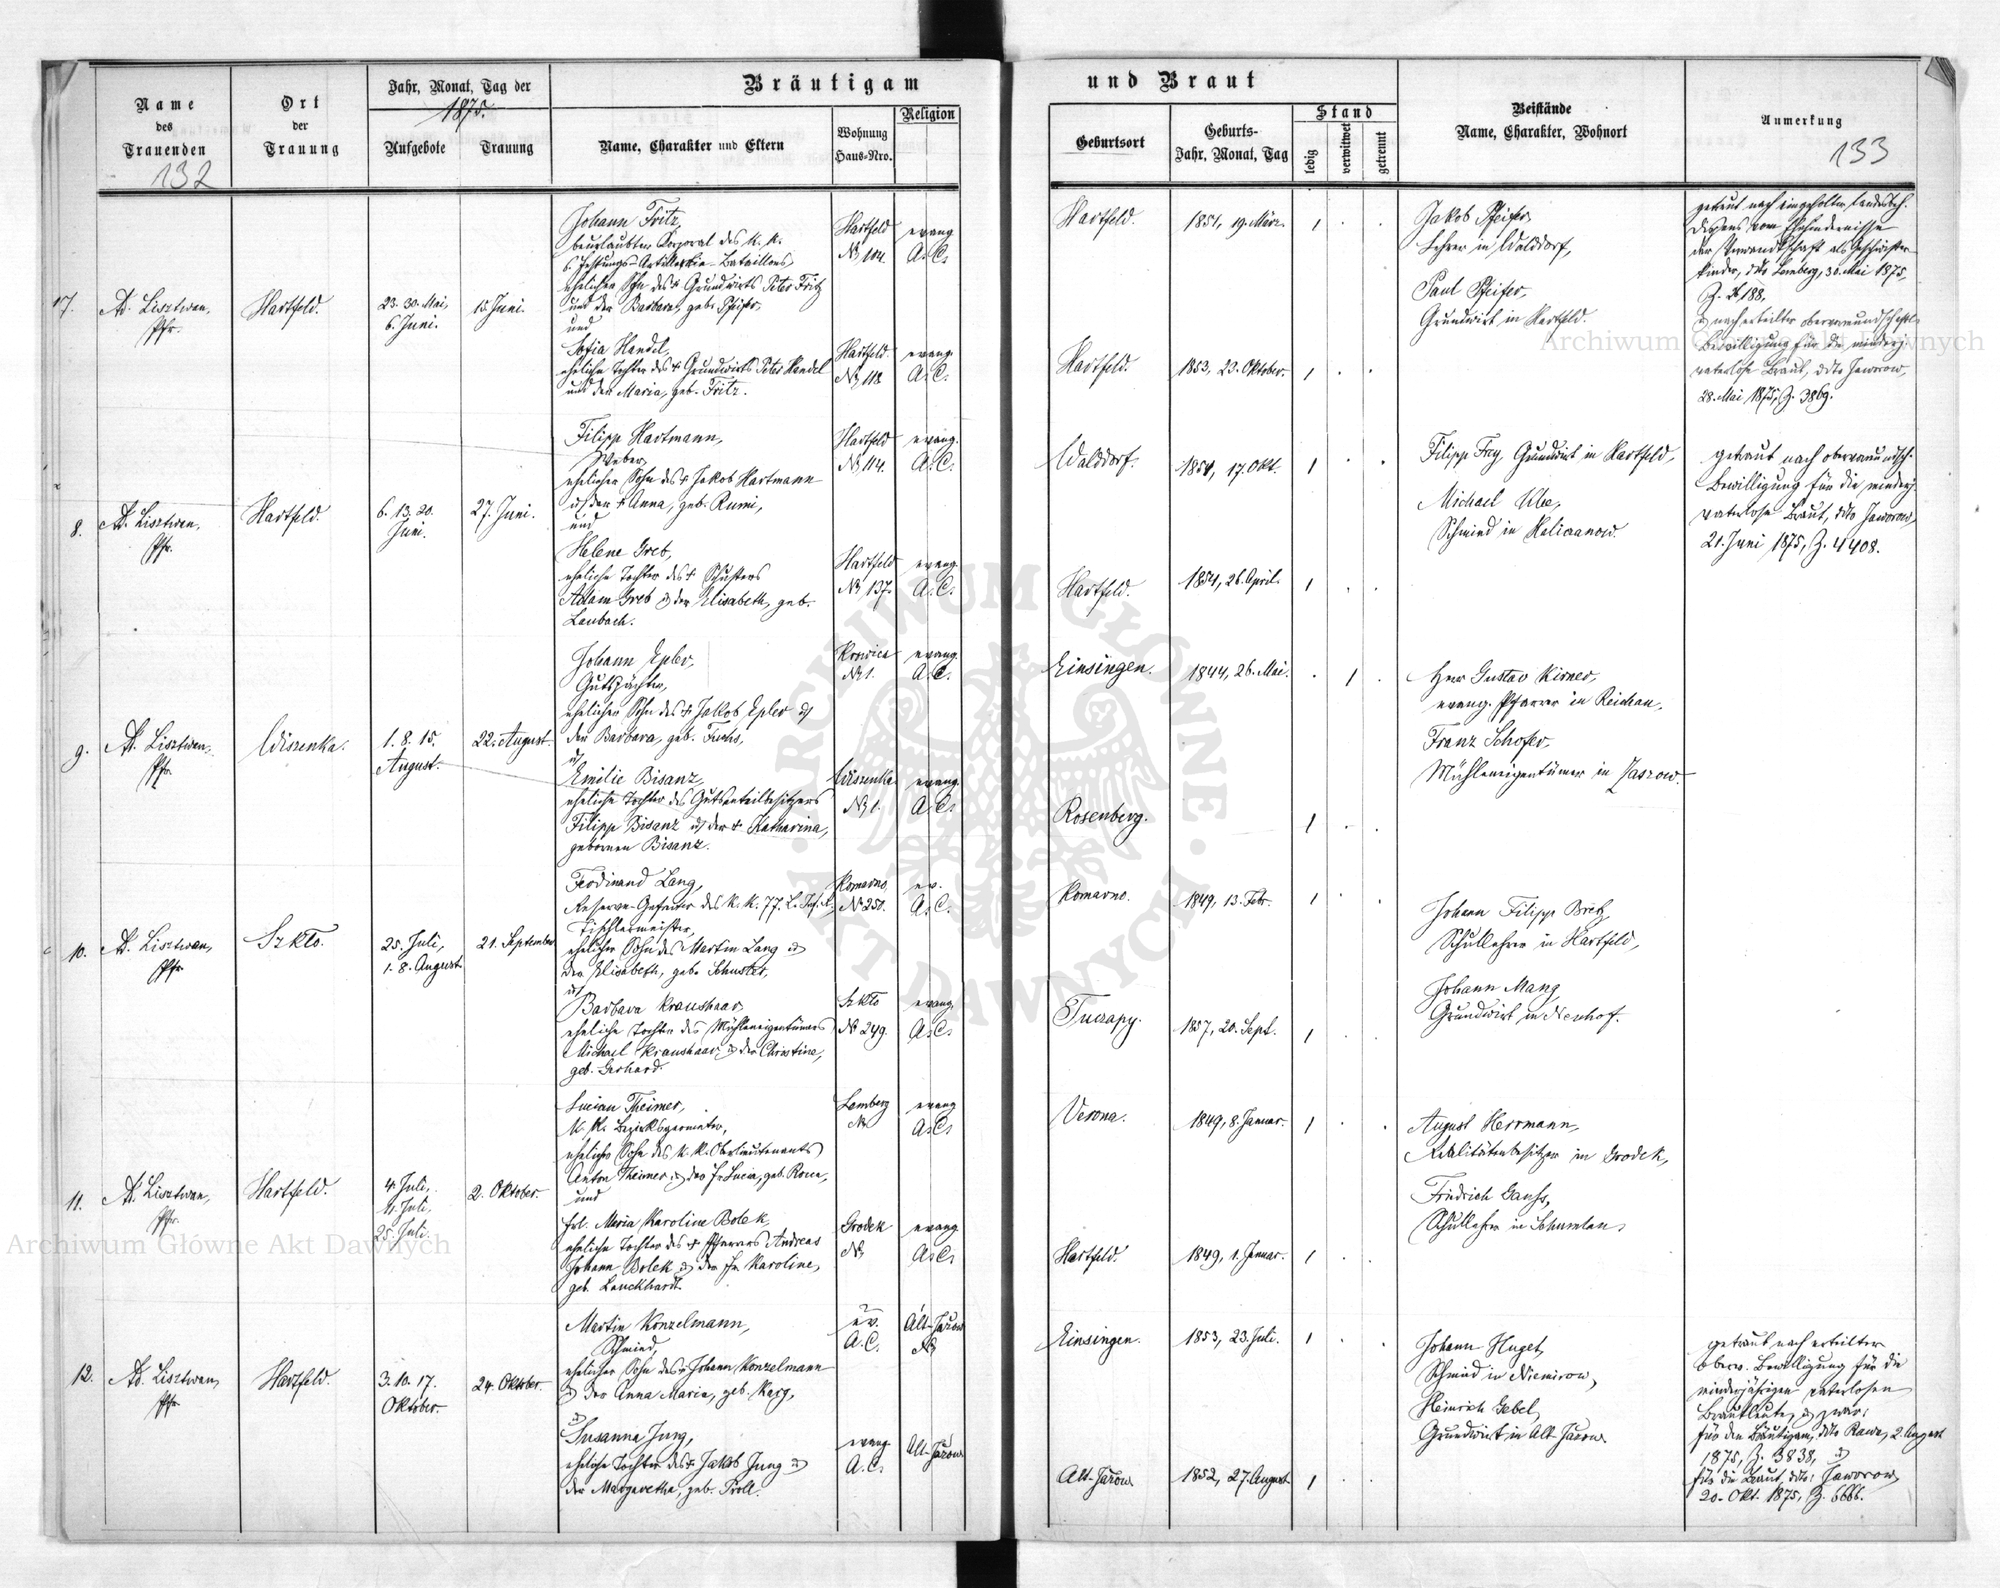 Name
des
Trauenden
132
Ort
der
Trauung
Jahr, Monat, Tag der
1875.
Aufgebote
Trauung
Bräutigam
Name, Charakter und Eltern
Wohnung
Haus-Nro.
Religion
und Braut
Geburtsort
Geburts-
Jahr, Monat, Tag
Stand
ledig
verwitwet
getrennt
Beistände
Name, Charakter, Wohnort
Anmerkung
133
7.
Ad. Lisztwan,
Pfr.
Hartfeld.
23. 30. Mai,
6. Juni.
15. Juni.
Johann Fritz,
beurlaubter Corporal des k. k.
6. Festungs-Artillerie-Bataillons,
ehelicher Sohn des + Grundwirts Peter Fritz
und der Barbara, geb. Pfeifer,
und
Sofia Handel,
eheliche Tochter des + Grundwirts Peter Handel
und der Maria, geb. Fritz.
Hartfeld
No 104.
evang.
A. C.
Hartfeld.
No 118
evang.
A. C.
Hartfeld.
1851, 19. März.
1
Hartfeld.
1853, 23. Oktober.
1
Jakob Pfeifer,
Lehrer in Walddorf,
Paul Pfeifer,
Grundwirt in Hartfeld.
getraut nach eingeholter Landesbeh.
Dispens vom Ehehindernisse
der Verwandtschaft als Geschwister-
kinder, ddto Lemberg, 30. Mai 1875,
nach erteilter obervormundschaftl.
Bewilligung für die minderj.
vaterlose Braut, ddto Jaworow,
28. Mai 1875, Z. 3869.
8.
Ad. Lisztwan,
Pfr.
Hartfeld.
6. 13. 20.
Juni.
27. Juni.
Filipp Hartmann,
Weber,
ehelicher Sohn des + Jakob Hartmann
u/ der + Anna, geb. Rumi,
und
Helene Greb,
eheliche Tochter des + Schusters
Adam Greb u. der Elisabeth, geb.
Laubach.
Hartfeld
No 114.
evang.
A. C.
Hartfeld
No 137.
evang.
A. C.
Walddorf.
1851, 17. Okt.
1
Hartfeld.
1854, 26. April.
1
Filipp Frey, Grundwirt in Hartfeld,
Michael Ulbe,
Schmied in
getraut nach obervormundsch.
Bewilligung für die minderj.
vaterlose Braut, ddto Jaworow,
21. Juni 1875, Z. 4408.
9.
Ad. Lisztwan,
Pfr.
Wiszenka.
1. 8. 15.
August.
22. August.
Johann Epler,
Gutspächter,
ehelicher Sohn des + Jakob Epler u/
der Barbara, geb. Fuchs,
u/
Emilie Bisanz,
eheliche Tochter des Gutsanteilbesitzers
Filipp Bisanz u/ der + Katharina,
gebornen Bisanz.
Krowica
No 1.
evang.
A. C.
Wiszenka
No 1.
evang.
A. C.
Einsingen.
1844, 26. Mai.
1
Rosenberg.
1
Herr Gustav Kirner,
evang. Pfarrer in Reichau,
Franz Schofer,
Mühleneigentümer in
10.
Ad. Lisztwan,
Pfr.
Szkło.
25. Juli,
1. 8. August.
21. September
Ferdinand Lang,
Reserve-Gefreiter des k. k. 77. L. Inf. R.,
Tischlermeister,
ehelicher Sohn des Martin Lang u.
der Elisabeth, geb. Schuster,
u/
Barbara Kraushaar,
eheliche Tochter des Mühleneigentümers
Michael Kraushaar u. der Christine,
geb. Gerhard.
Komarno,
No 250.
ev.
A. C.
Szkło
No 249.
evang.
A. C.
Komarno.
1849, 13. Febr.
1
Tuczapy.
1857, 20. Sept.
1
Johann Filipp Bretz,
Schullehrer in Hartfeld,
Johann Mang,
Grundwirt in Neuhof.
11.
Ad. Lisztwan,
Pfr.
Hartfeld.
4. Juli,
11. Juli,
25. Juli.
2. Oktober.
Lucian Theimer,
k. k. Bezirksgeometer,
ehelicher Sohn des k. k. Oberlieutenants
Anton Theimer u. der Fr. Lucia, geb.
und
Frl. Maria Karoline Bolek,
eheliche Tochter des + Pfarrers Andreas
Johann Bolek u. der Fr. Karoline,
geb. Lauckhardt.
Lemberg
No
evang.
A. C.
Grodek
No
evang.
A. C.
Verona.
1849, 8. Januar.
1
Hartfeld.
1849, 1. Januar.
1
August Herrmann,
Realitätenbesitzer in Grodek,
Fridrich Gauss,
Schullehrer in Schumlau.
12.
Ad. Lisztwan,
Pfr.
Hartfeld.
3. 10. 17.
Oktober.
24. Oktober.
Martin Konzelmann,
Schmied,
ehelicher Sohn des + Johann Konzelmann
u. der Anna Maria, geb. Karg,
u.
Susanna Jung,
eheliche Tochter des + Jakob Jung u.
der Margaretha, geb. Proll.
ev.
A. C.
Alt-Jazow
No
evang.
A. C.
Alt-Jazow
Einsingen.
1853, 23. Juli.
1
Alt-Jazow.
1852, 27. August
1
Johann Huget,
Schmied in Niemirow,
Heinrich Gebel,
Grundwirt in Alt-Jazow.
getraut nach erteilter
oberv. Bewilligung für die
minderjährigen vaterlosen
Brautleute, u. zwar:
für den Bräutigam, ddto Rawa, 2. August
1875, Z. 3838, u.
für die Braut, ddto: Jaworow,
20. Okt. 1875, Z. 6666.
Archiwum Główne Akt Dawnych
Archiwum Główne Akt Dawnych
ARCHIWUM GŁÓWNE AKT DAWNYCH